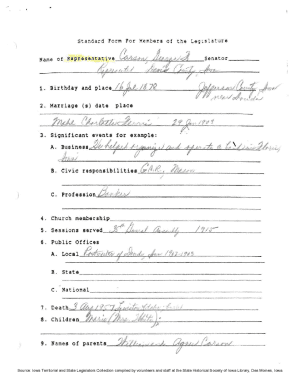 Standard Form For Members of the Legislature
Name of Representative Carson, George Senator
Represented County, Iowa
1. Birthday and place 16 Jul 1878 Jefferson County, Iowa
near
2. Marriage (s) date place
Charlotte 1909
3. Significant events for example:
A. Business He helped organize and operate a
Iowa
B. Civic responsibilities Mason
C. Profession Banker
4. Church membership
5. Sessions served General Assembly 1915
6. Public Offices
A. Local Postmaster of Iowa
B. State
C. National
7. Death 3 Aug 1957
8. Children Marie (Mrs.
9. Names of parents William and Agnes Carson
Source: Iowa Territorial and State Legislators Collection compiled by volunteers and staff at the State Historical Society of Iowa Library, Des Moines, Iowa.